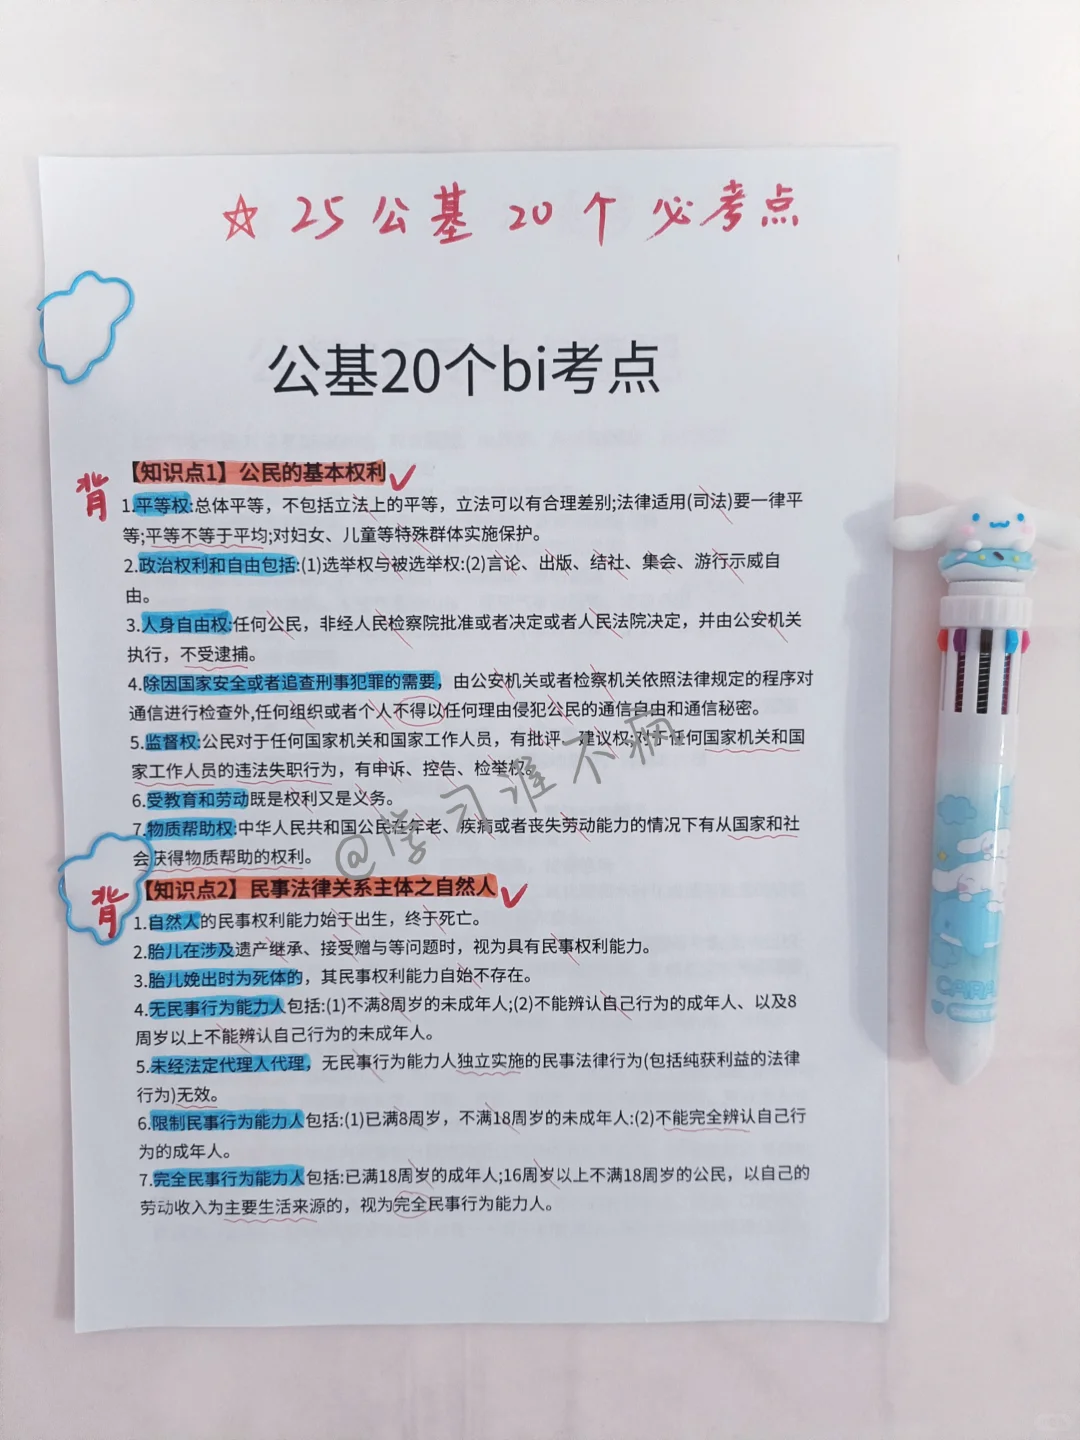 ☆ 25公基 20个 必考点
公基20个bi考点
【知识点1】公民的基本权利✓
背
1.平等权:总体平等，不包括立法上的平等，立法可以有合理差别;法律适用(司法)要一律平
等;平等不等于平均;对妇女、儿童等特殊群体实施保护。
2.政治权利和自由包括:(1)选举权与被选举权:(2)言论、出版、结社、集会、游行示威自
由。
3.人身自由权:任何公民，非经人民检察院批准或者决定或者人民法院决定，并由公安机关
执行，不受逮捕。
4.除因国家安全或者追查刑事犯罪的需要，由公安机关或者检察机关依照法律规定的程序对
通信进行检查外,任何组织或者个人不得以任何理由侵犯公民的通信自由和通信秘密。
5.监督权:公民对于任何国家机关和国家工作人员，有批评、建议权;对于任何国家机关和国
家工作人员的违法失职行为，有申诉、控告、检举权。
6.受教育和劳动既是权利又是义务。
7.物质帮助权:中华人民共和国公民在年老、疾病或者丧失劳动能力的情况下有从国家和社
会获得物质帮助的权利。
@学习谁不病
【知识点2】民事法律关系主体之自然人✓
背
1.自然人的民事权利能力始于出生，终于死亡。
2.胎儿在涉及遗产继承、接受赠与等问题时，视为具有民事权利能力。
3.胎儿娩出时为死体的，其民事权利能力自始不存在。
4.无民事行为能力人包括:(1)不满8周岁的未成年人;(2)不能辨认自己行为的成年人、以及8
周岁以上不能辨认自己行为的未成年人。
5.未经法定代理人代理，无民事行为能力人独立实施的民事法律行为(包括纯获利益的法律
行为)无效。
6.限制民事行为能力人包括:(1)已满8周岁，不满18周岁的未成年人:(2)不能完全辨认自己行
为的成年人。
7.完全民事行为能力人包括:已满18周岁的成年人;16周岁以上不满18周岁的公民，以自己的
劳动收入为主要生活来源的，视为完全民事行为能力人。